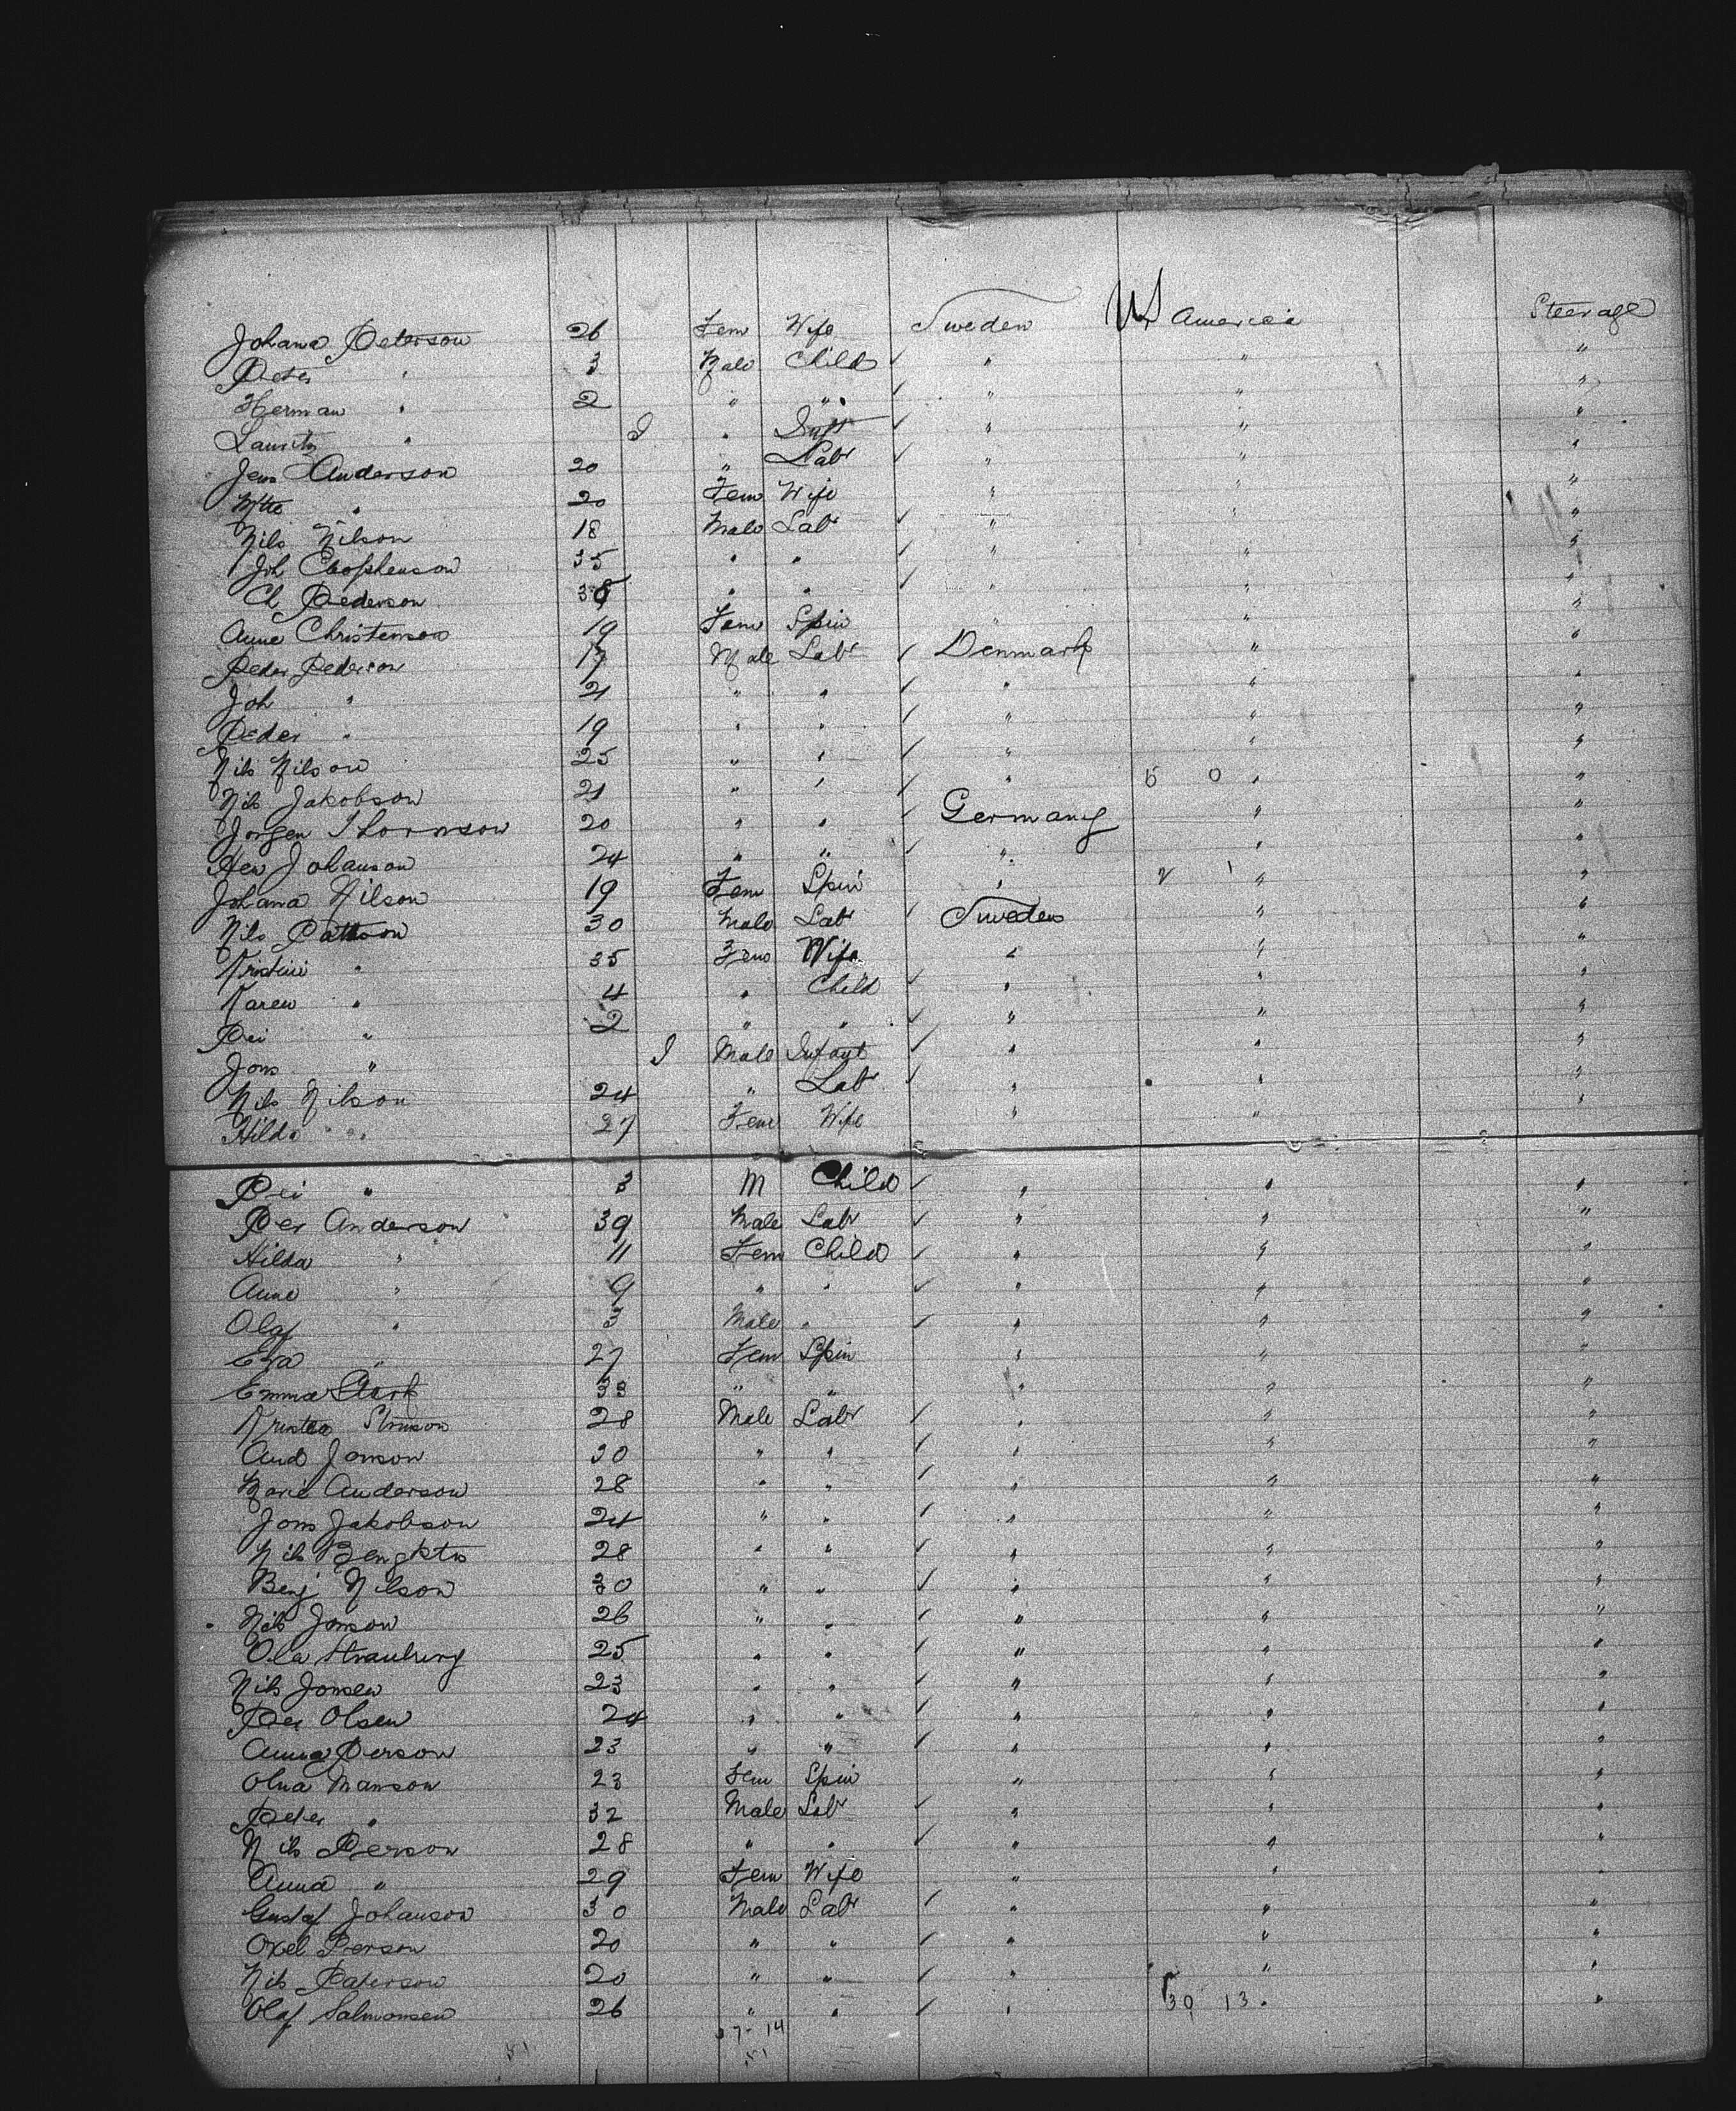 Johana Peterson 26 Fem Wife Sweden US America Steerage
Peter " 3 Male Child " " "
Herman " 2 " " " " "
Lauritz " I " Inft " " "
Jens Anderson 20 " Lab " " "
" 20 Fem Wife " " "
Nils Nilson 18 Male Lab " " "
Joh 35 " " " " "
Pederson 38 " " " " "
Anne Christenson 19 Fem Spin " " "
Peder Pederson 17 Male Lab Denmark " "
Joh " 21 " " " " "
Peder " 19 " " " " "
Nils Nilson 25 " " " " "
Nils Jakobson 21 " " " 5 0 " "
Jorgen Thornson 20 " " Germany " "
Johanson 24 " " " " "
Johana Nilson 19 Fem Spin " 2 1 " "
Nils Pattson 30 Male Lab Sweden " "
Kristin " 35 Fem Wife " " "
Karen " 4 " Child " " "
" 2 " " " " "
Jons " I Male Infant " " "
Nils Nilson 24 " Lab " " "
Hilda " 27 Fem Wife " " "
" 3 M Child " " "
Per Anderson 39 Male Lab " " "
Hilda " 11 Fem Child " " "
Anne " 9 " " " " "
Olaf " 3 Male " " " "
" 27 Fem Spin " " "
Emma 33 " " " " "
28 Male Lab " " "
And Jonson 30 " " " " "
Anderson 28 " " " " "
Jons Jakobson 24 " " " " "
Nils 28 " " " " "
Benj Nilson 30 " " " " "
Nils Jonson 26 " " " " "
Ola 25 " " " " "
Nils Jonsen 23 " " " " "
Per Olsen 24 " " " " "
Person 23 " " " " "
Manson 23 Fem Spin " " "
Peter " 32 Male Lab " " "
Nils Person 28 " " " " "
Anna " 29 Fem Wife " " "
Gustaf Johanson 30 Male Lab " " "
Oxel Person 20 " " " " "
Nils Paterson 20 " " " " "
Olaf Salmonsen 26 " " " 30 13 " "
37-14
51 51